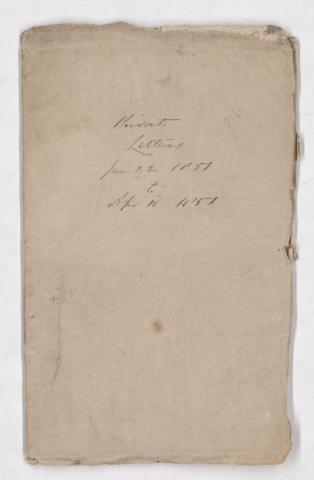 Private
Letters
Jan 22 1851
to
Apr 10 1851